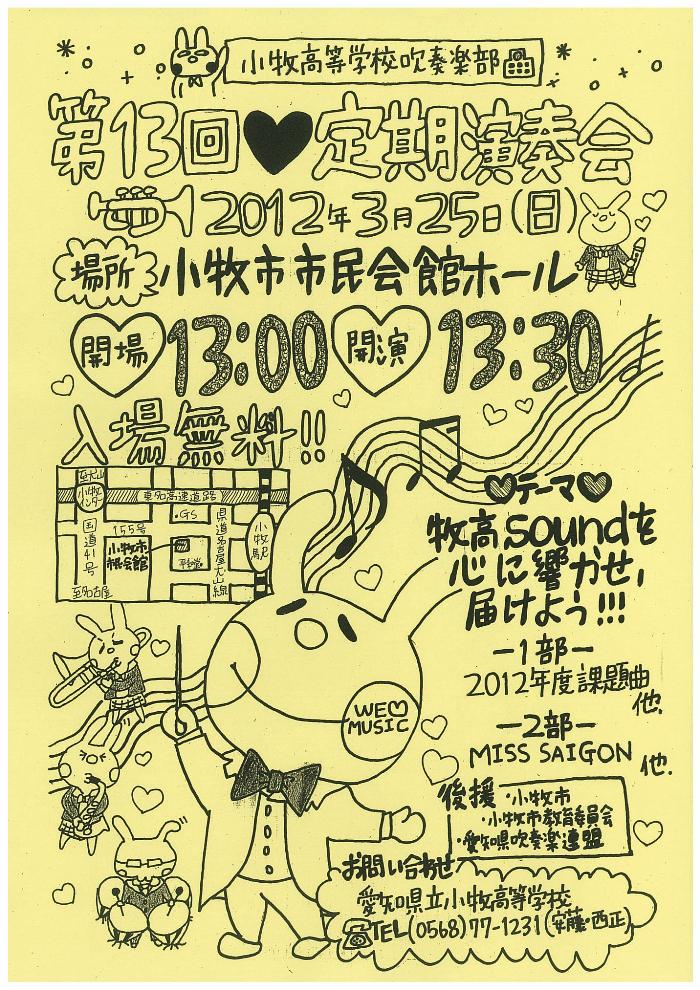 小牧高等学校吹奏楽部
第13回♥定期演奏会
2012年3月25日(日)
場所 小牧市市民会館ホール
開場 13:00 開演 13:30
入場無料!!
至犬山
小牧インター
東名高速道路
国道41号
155号
・GS
県道名古屋犬山線
小牧駅
小牧市市民会館
至名古屋
♥テーマ♥
牧高soundを
心に響かせ,
届けよう!!!
-1部-
2012年度課題曲
他.
-2部-
MISS SAIGON 他.
WE♡
MUSIC
後援・小牧市
・小牧市教育委員会
・愛知県吹奏楽連盟
お問い合わせ
愛知県立小牧高等学校
☎TEL(0568)77-1231(安藤・西正)